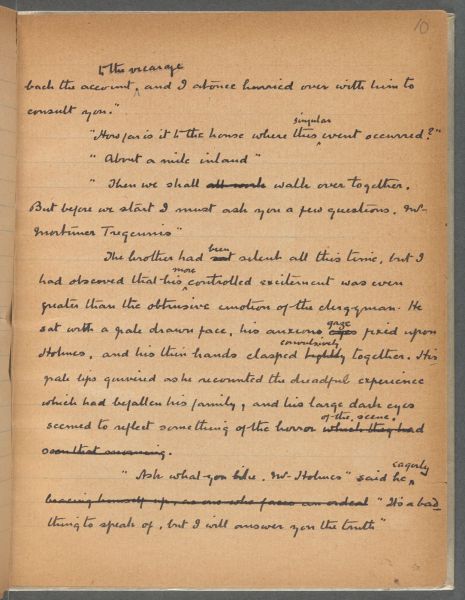 10
to the vicarage
back the account, and I at once hurried over with him to
consult you."
singular
"How far is it to the house where this event occurred?"
"About a mile inland"
"Then we shall all walk walk over together.
But before we start I must ask you a few questions. Mr
Mortimer Tregennis"
been
The brother had not silent all this time, but I
more
had observed that his controlled excitement was even
greater than the obtrusive emotion of the clergyman. He
gaze
sat with a pale drawn face, his anxious eyes fixed upon
convulsively
Holmes, and his thin hands clasped tightly together. His
pale lips quivered as he recounted the dreadful experience
which had befallen his family, and his large dark eyes
of the scene.
seemed to reflect something of the horror which they had
seen that morning.
eagerly
"Ask what you like. Mr Holmes" said he
bracing himself up, as one who faces an ordeal "It's a bad
thing to speak of, but I will answer you the truth"